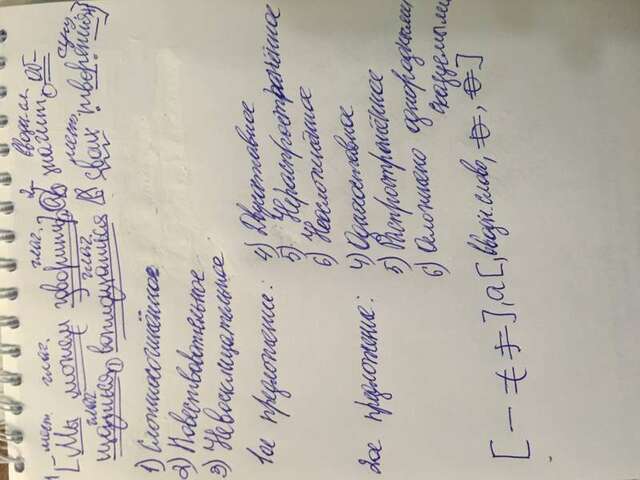 мест. глаг. глаг. 2 вводн.сл.
[Мы можем говорить], (а) значит, об-
глаг. глаг. мест. сущ.
щаться, воплощаться в своих творениях]
1) Сложносочинённое
2) Повествовательное
3) Невосклицательное
1ое предложение: 4) Двусоставное
5) Нераспространённое
6) Неосложнённое
2ое предложение: 4) Односоставное
5) Распространённое
6) Осложнено однородными
сказуемыми
[— = =], а [, вводн. слово, =, =]